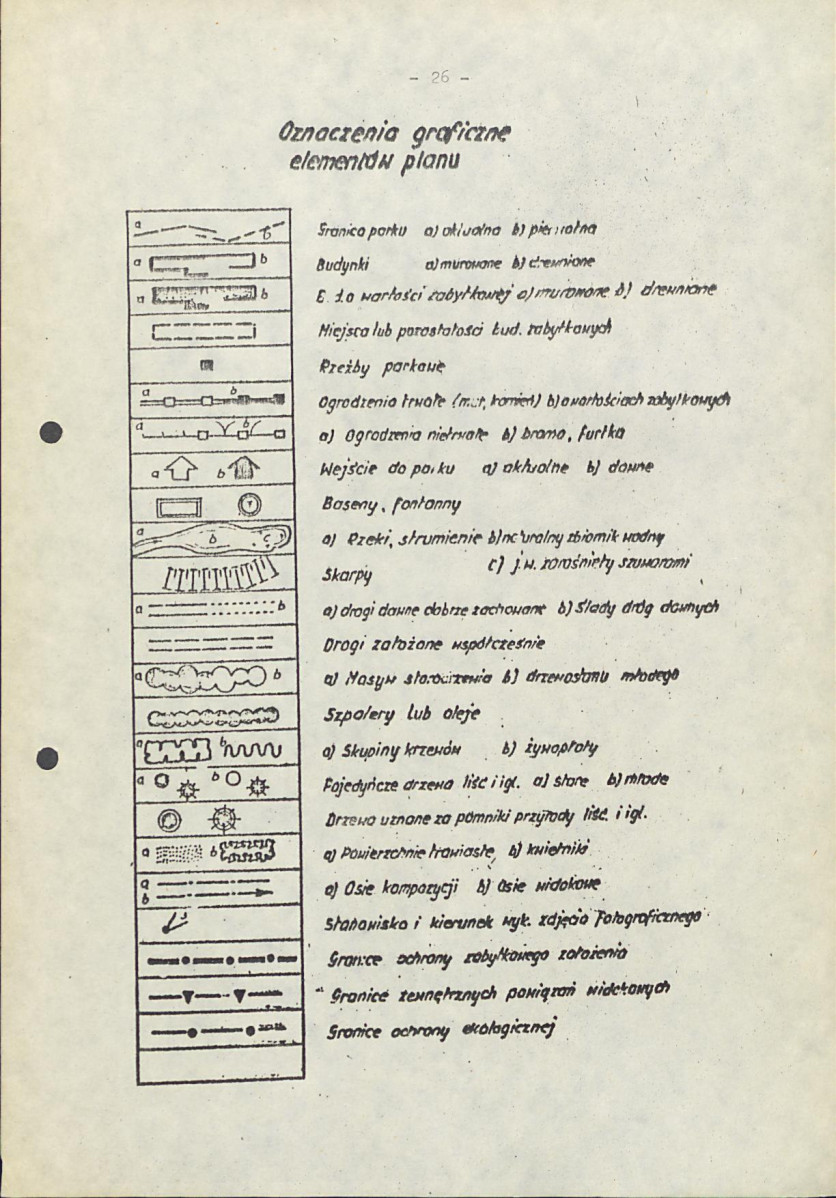 - 26 -
Oznaczenia graficzne
elementów planu
a b Granica parku a) aktualna b) pierwotna
a b Budynki a) murowane b) drewniane
a b B. o wartości zabytkowej a) murowane b) drewniane
Miejsca lub pozostałości bud. zabytkowych
Rzeźby parkowe
a b Ogrodzenia trwałe (mur, kamień) b) o wartościach zabytkowych
a b a) Ogrodzenia nietrwałe b) brama, furtka
a b Wejście do parku a) aktualne b) dawne
Baseny, fontanny
a b c a) Rzeki, strumienie b) naturalny zbiornik wodny
c) j.w. zarośnięty szuwarami
Skarpy
a b a) drogi dawne dobrze zachowane b) Ślady dróg dawnych
Drogi założone współcześnie
a b a) Masyw starodrzewia b) drzewostanu młodego
Szpalery lub aleje
a b a) Skupiny krzewów b) żywopłoty
a b Pojedyńcze drzewa liść i igl. a) stare b) młode
Drzewa uznane za pomniki przyrody liść. i igl.
a b a) Powierzchnie trawiaste, b) kwietniki
a b a) Osie kompozycji b) Osie widokowe
Stanowiska i kierunek wyk. zdjęcia fotograficznego
Granice ochrony zabytkowego założenia
Granice zewnętrznych powiązań widokowych
Granice ochrony ekologicznej